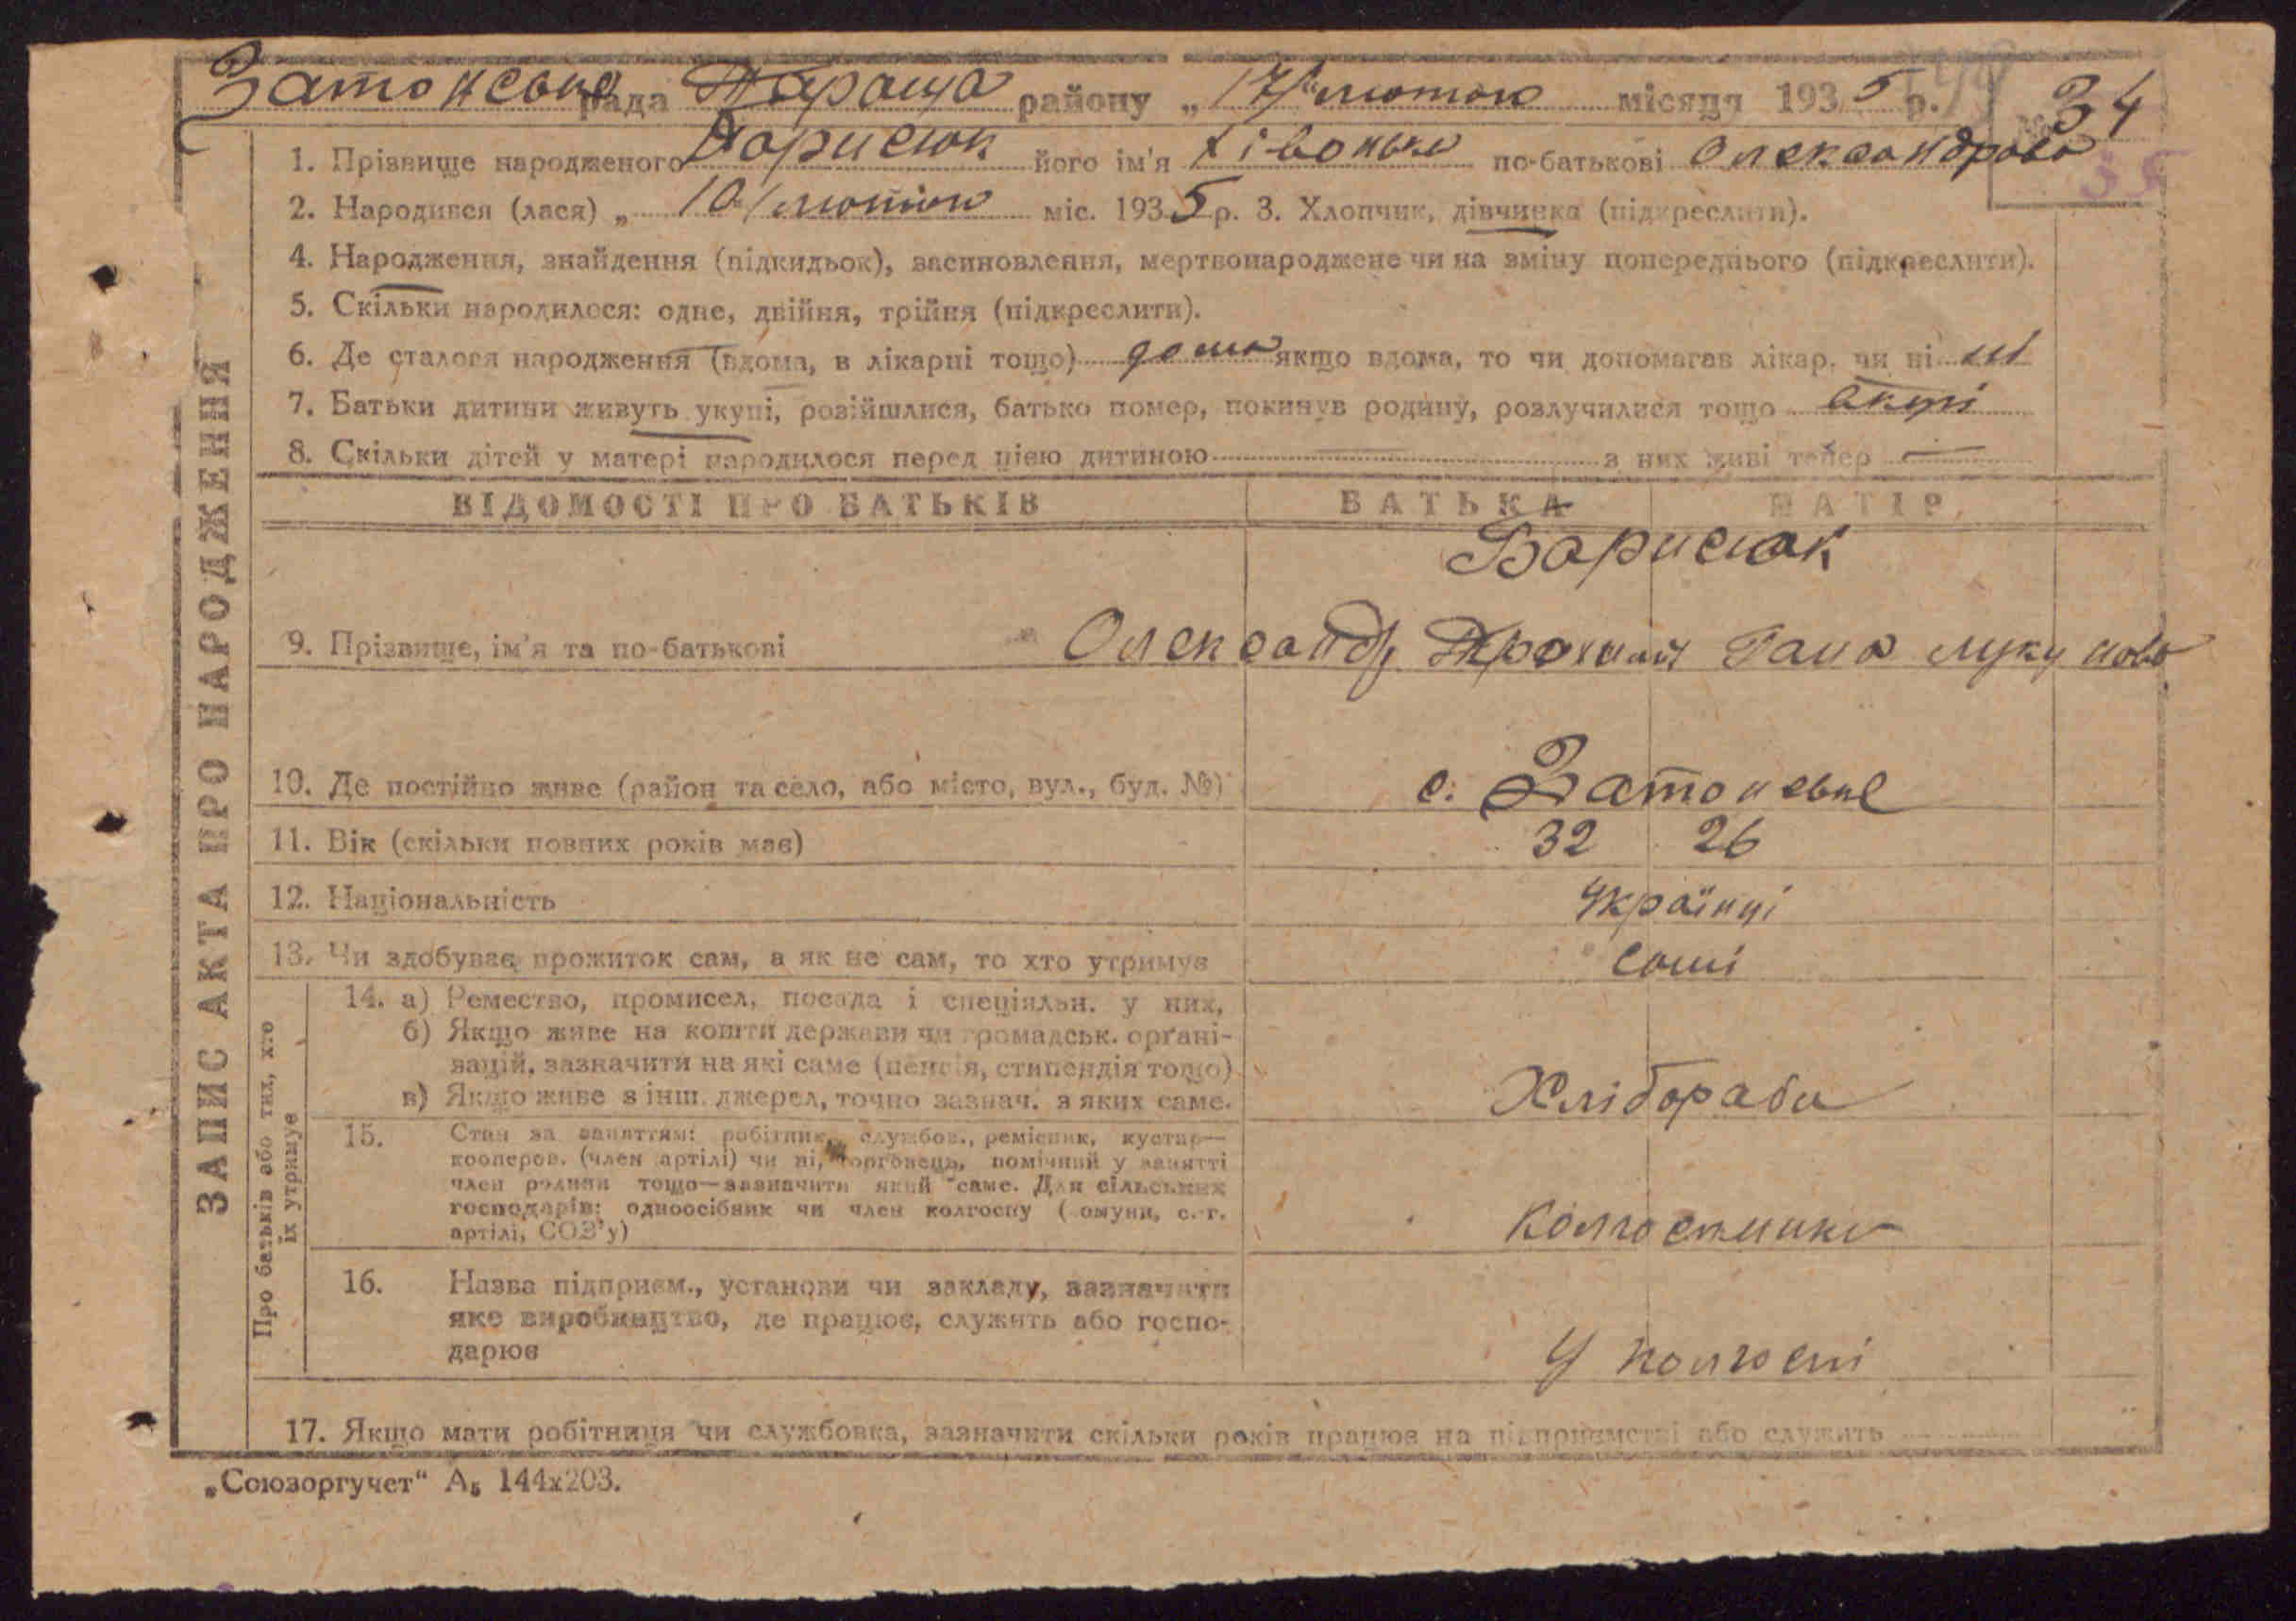 Затонське рада Тараща району „ 17/ лютого місяця 1935 р. № 34
35
1. Прізвище народженого Борисюк його ім'я по-батькові Олександрова
2. Народився (лася) „ 10/ лютого міс. 1935 р. 3. Хлопчик, дівчинка (підкреслити).
4. Народження, знайдення (підкидьок), засиновлення, мертвонароджене чи на зміну попереднього (підкреслити).
5. Скільки народилося: одне, двійня, трійня (підкреслити).
6. Де сталося народження (вдома, в лікарні тощо) дома якщо вдома, то чи допомагав лікар, чи ні ні
7. Батьки дитини живуть укупі, розійшлися, батько помер, покинув родину, розлучилися тощо вкупі
8. Скільки дітей у матері народилося перед цією дитиною — з них живі тепер —
ВІДОМОСТІ ПРО БАТЬКІВ БАТЬКА МАТІР
Борисюк
9. Прізвище, ім'я та по-батькові Олександр Гана
10. Де постійно живе (район та село, або місто, вул., буд. №) с. Затонське
11. Вік (скільки повних років має) 32 26
12. Національність Українці
13. Чи здобуває прожиток сам, а як не сам, то хто утримує самі
14. а) Ремество, промисел, посада і спеціяльн. у них,
б) Якщо живе на кошти держави чи громадськ. орґані-
зацій, зазначити на які саме (пенсія, стипендія тощо)
в) Якщо живе з інш. джерел, точно зазнач. з яких саме. Хлібораби
15. Стан за заняттям: робітник, службов., ремісник, кустар—
кооперов. (член артілі) чи ні, торговець, помічний у занятті
член родини тощо—зазначити який саме. Для сільських
господарів: одноосібник чи член колгоспу (комуни, с.-г.
артілі, СОЗ'у) Колгоспники
16. Назва підприєм., установи чи закладу, зазначити
яке виробництво, де працює, служить або госпо-
дарює У колгоспі
17. Якщо мати робітниця чи службовка, зазначити скільки років працює на підприємстві або служить
ЗАПИС АКТА ПРО НАРОДЖЕННЯ
Про батьків або тих, хто
їх утримує
„Союзоргучет“ А₅ 144х203.